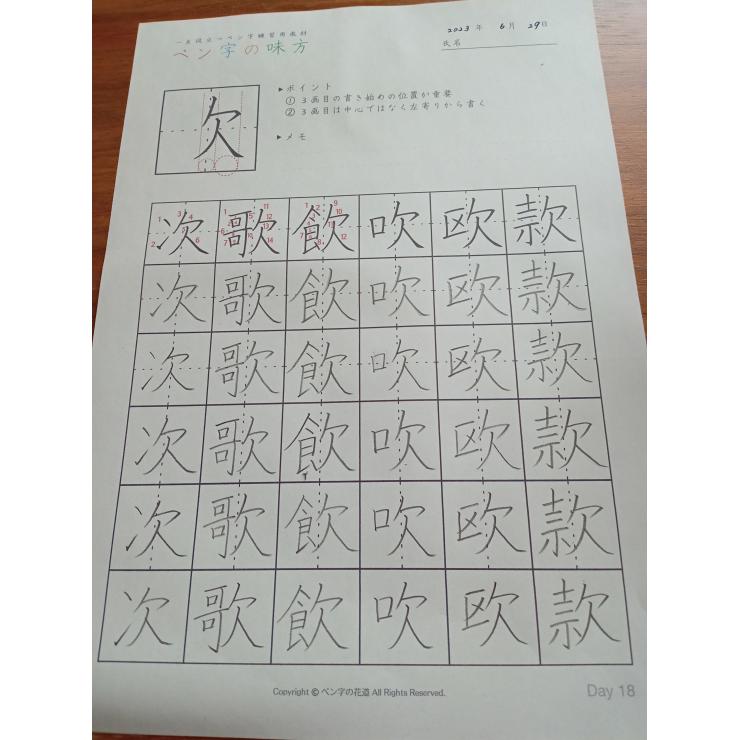 一生役立つペン字練習用教材
ペン字の味方
2023年 6月 29日
氏名
欠
▶ポイント
① 3画目の書き始めの位置が重要
② 3画目は中心ではなく左寄りから書く
▶メモ
次 歌 飲 吹 欧 款
次 歌 飲 吹 欧 款
次 歌 飲 吹 欧 款
次 歌 飲 吹 欧 款
次 歌 飲 吹 欧 款
次 歌 飲 吹 欧 款
Copyright © ペン字の花道 All Rights Reserved.
Day 18